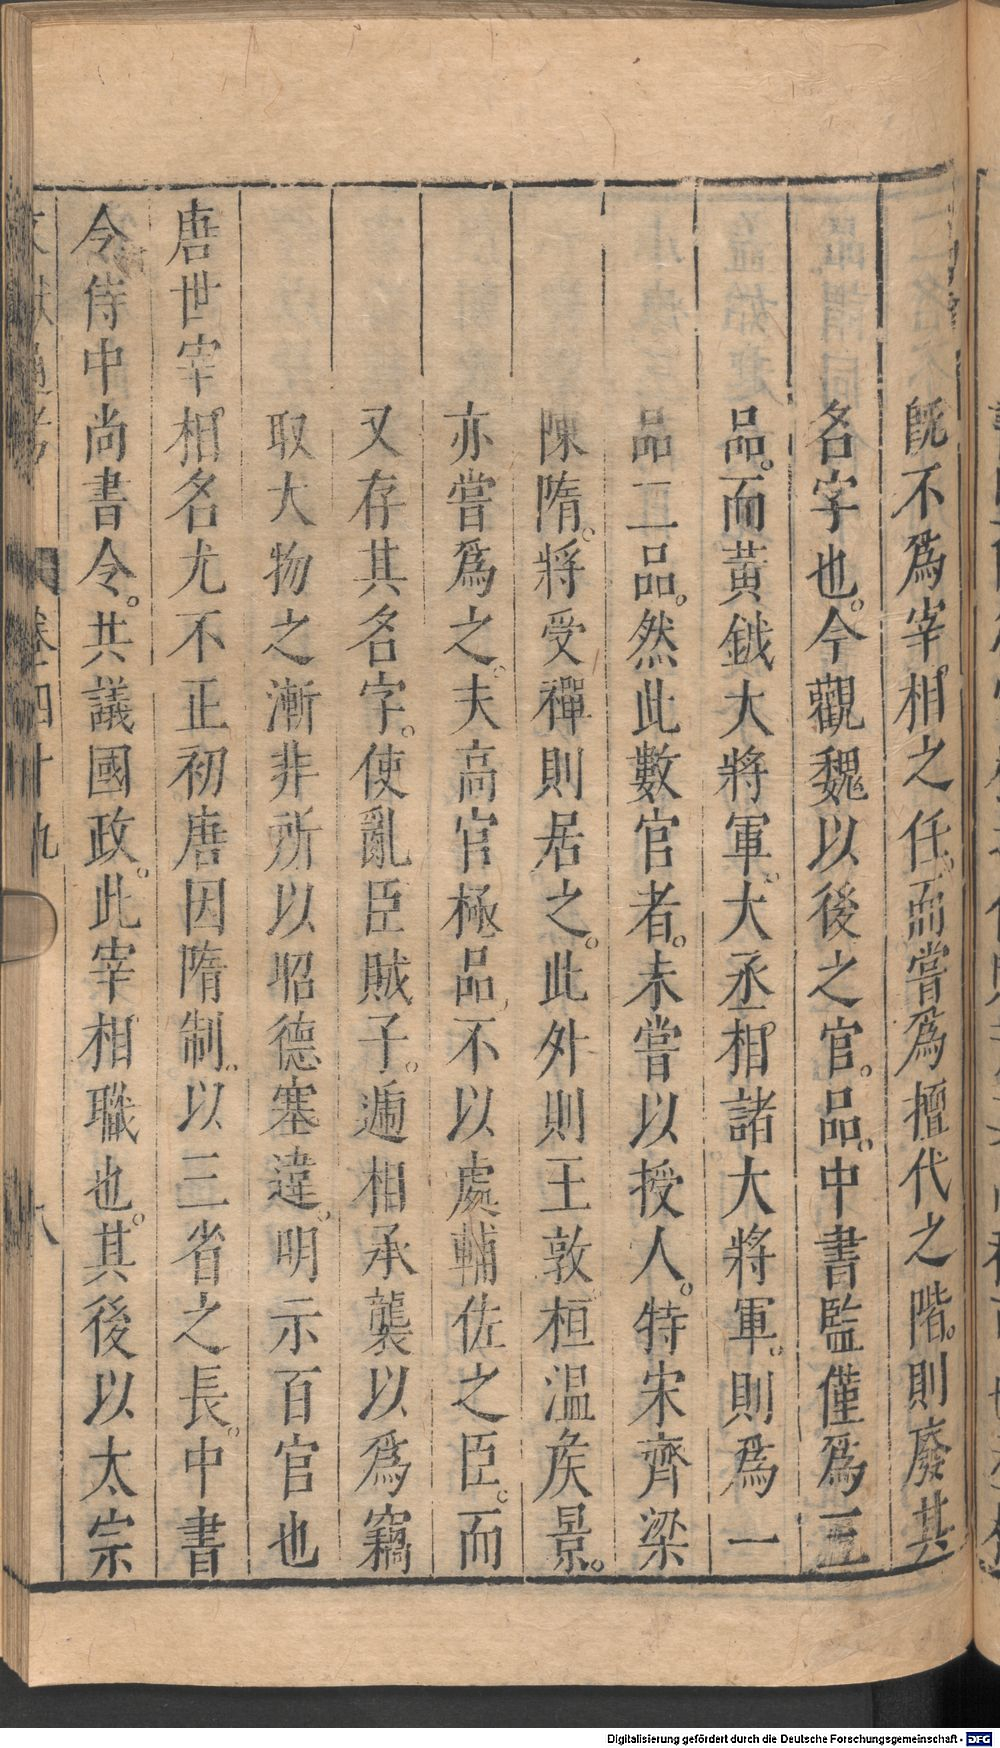 既不爲宰相之任。而嘗爲擅代之階。則廢其
名字也。今觀魏以後之官。品。中書監僅爲三
品。而黃鉞大將軍。大丞相諸大將軍。則爲一
品二品。然此數官者。未嘗以授人。特宋齊梁
陳隋。將受禪則居之。此外則王敦桓温矦景。
亦嘗爲之。夫高官極品不以處輔佐之臣。而
又存其名字。使亂臣賊子。遞相承襲以爲竊
取大物之漸非所以昭德塞違。明示百官也
唐世宰相名尤不正初唐因隋制。以三省之長。中書
令侍中尚書令。共議國政。此宰相職也。其後以太宗
文獻通考 卷四十九 八
Digitalisierung gefördert durch die Deutsche Forschungsgemeinschaft - DFG